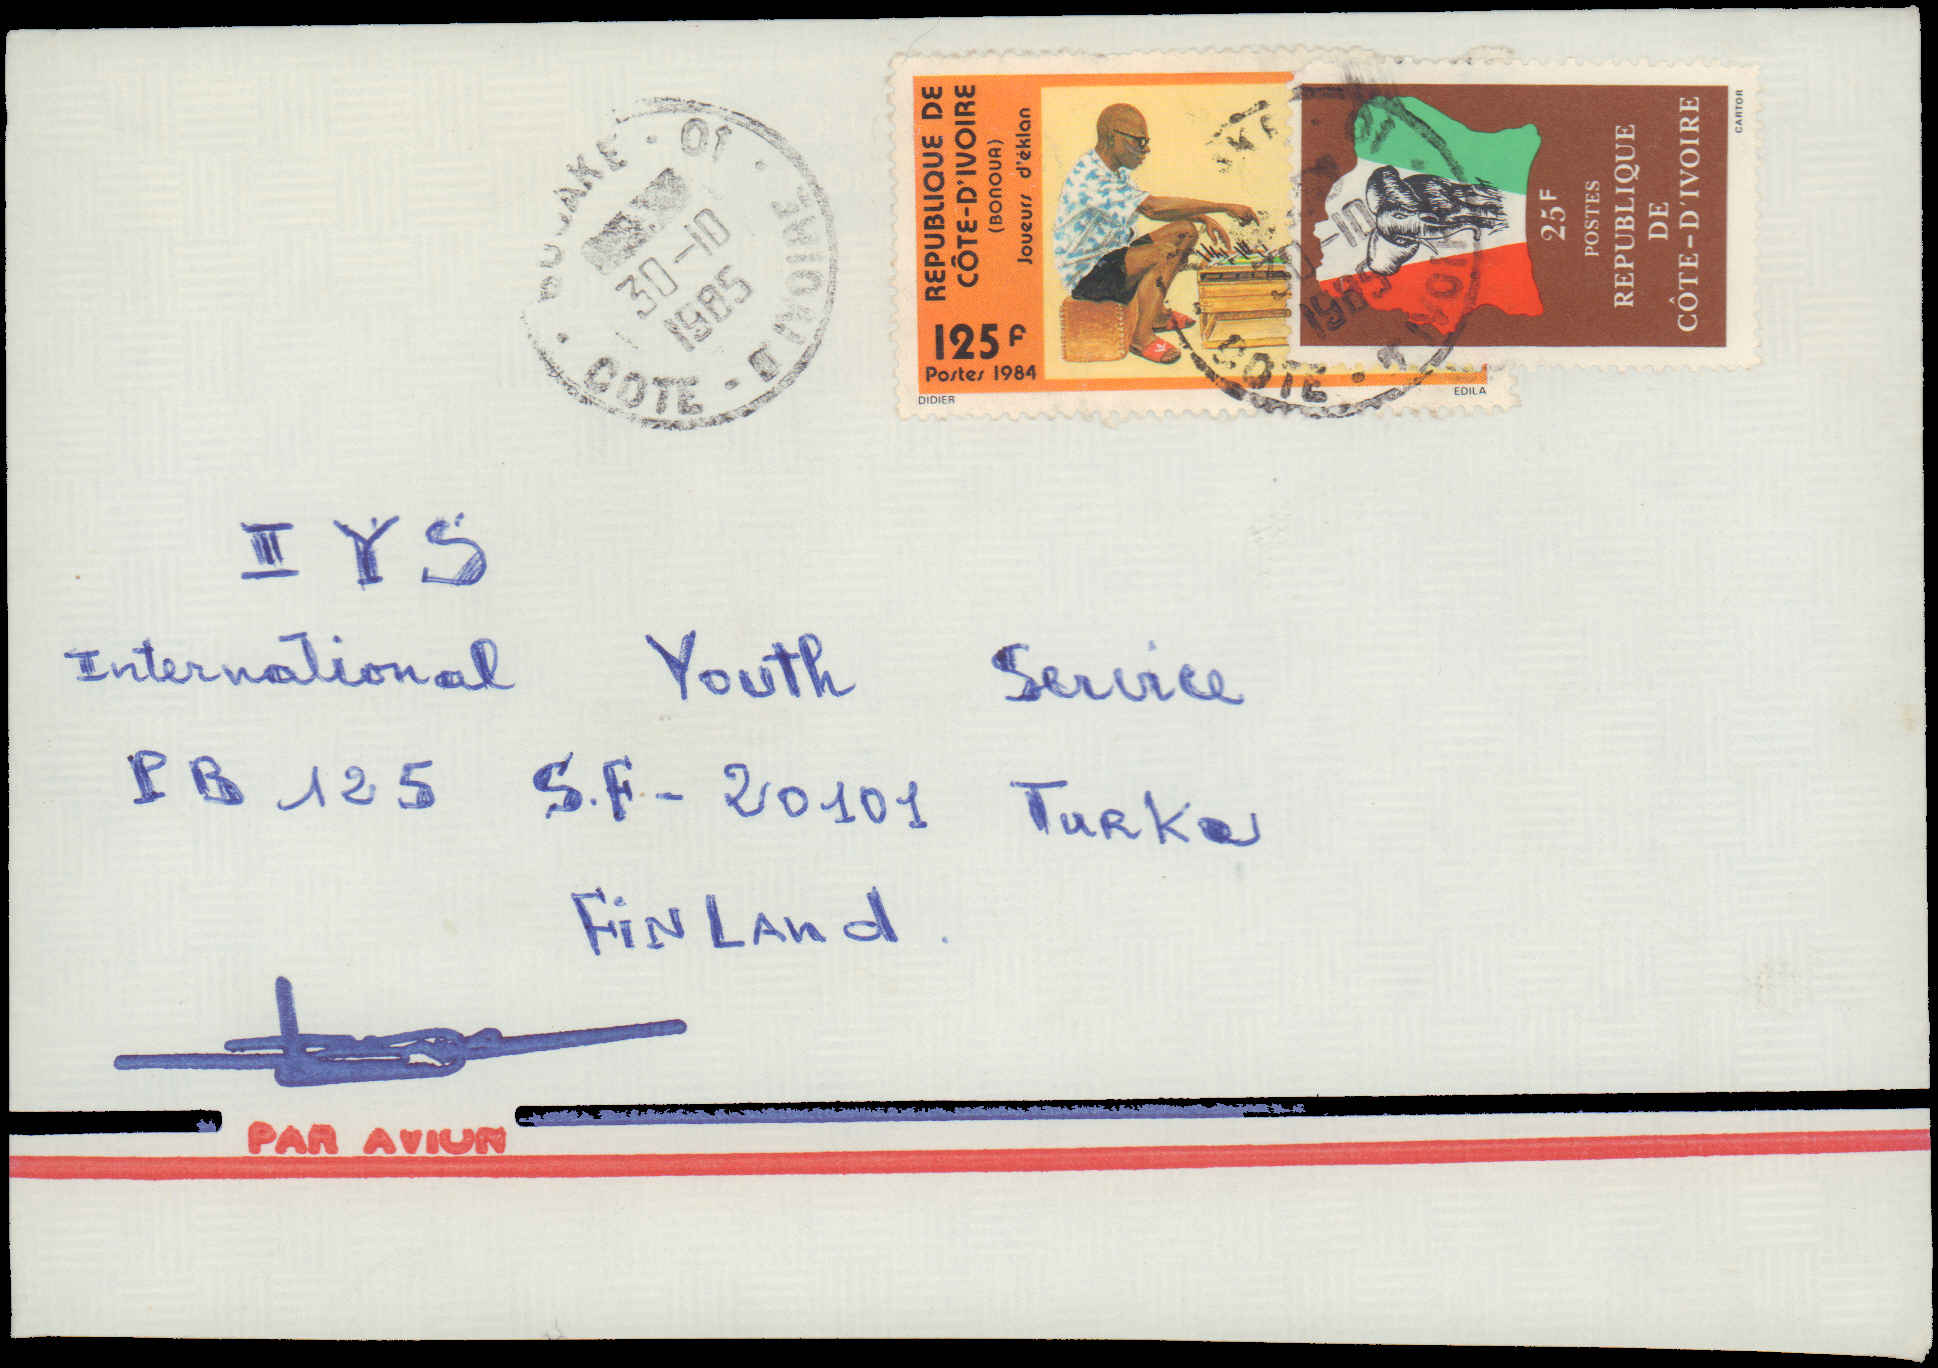 BOUAKE - 01
30-10
1985
COTE - D'IVOIRE
REPUBLIQUE DE
CÔTE-D'IVOIRE
(BONOUA)
Joueurs d'éklan
125 F
Postes 1984
DIDIER
EDILA
25F
POSTES
REPUBLIQUE
DE
CÔTE-D'IVOIRE
CARTOR
30-10
1985
COTE
I Y S
International Youth Service
PB 125 S.F- 20101 Turku
FiNLand.
PAR AVION